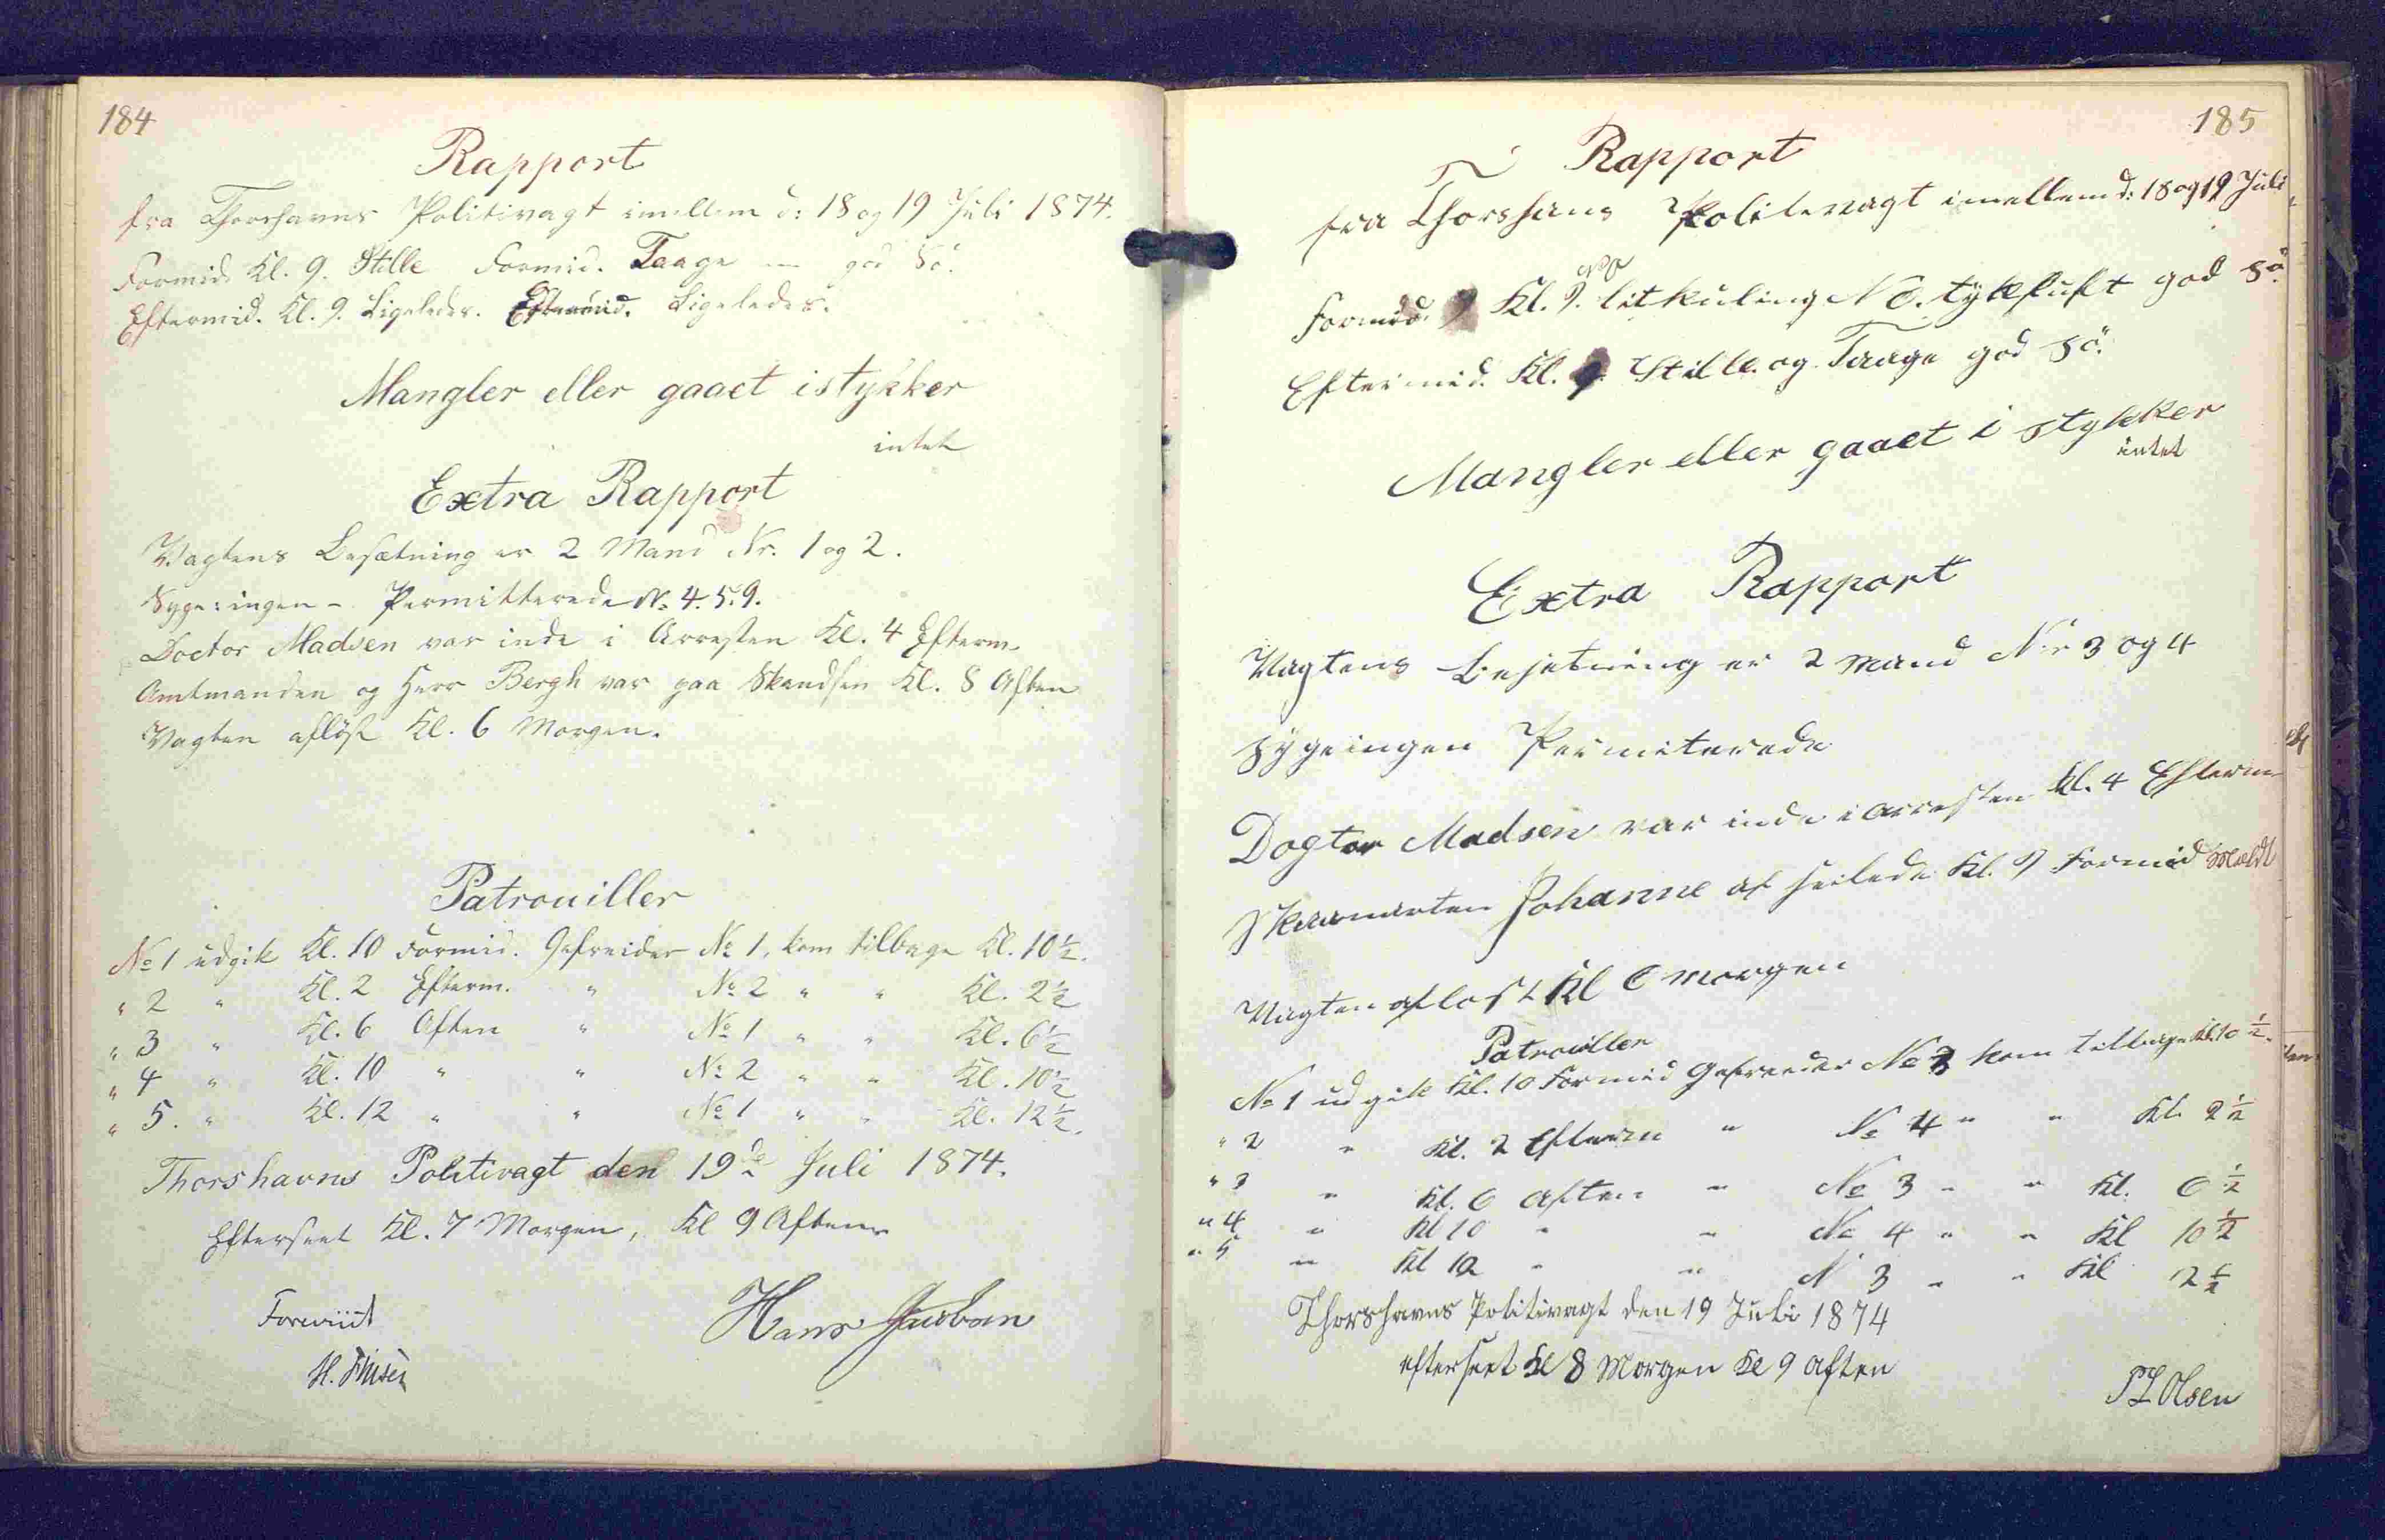 184
Rapport
fra Thorshavns Politivagt imellem d: 18 og 19 Juli 1874.
Formid. Kl. 9. Stille Formid. Taage — god Sö.
Eftermid. Kl. 9. Ligeledes. Eftermid. Ligeledes.
Mangler eller gaaet istykker
intet
Extra Rapport
Vagtens Besætning er 2 Mand Nr. 1 og 2.
Syge: ingen – Permitterede No. 4. 5. 9.
Doctor Madsen var inde i Arresten Kl. 4 Efterm.
Amtmanden og Herr Bergh var paa Skandsen Kl. 8 Aften
Vagten aflöst Kl. 6 Morgen.
Patrouiller
No 1 udgik Kl. 10 Formid. Gefreider No 1. kom tilbage Kl. 10½.
" 2 " Kl. 2 Efterm. " No 2 " " Kl. 2½
" 3 " Kl. 6 Aften " No 1 " " Kl. 6½
" 4 " Kl. 10 " " No 2 " " Kl. 10½
" 5. " Kl. 12 " " No 1 " " Kl. 12½.
Thorshavns Politivagt den 19de Juli 1874.
Efterseet Kl. 7 Morgen, Kl 9 Aften
Foreviist
Hans Jacobsen
H.
185
Rapport
fra Thorshans Politevagt imellem d: 18 og 19 Juli
Formid. 9 Kl. 9. litkuling N O. tykluft god Sö.
Eftermid. Kl. 9. Stille og Taage god Sö.
Mangler eller gaaet i stykker
intet
Extra Rapport
Vagtens Besetning er 2 Mand Nr 3 og 4
Sygeingen Permiterede
Dogtor Madsen var inde i Arresten Kl. 4 Efterm
Johanne af seilede Kl. 9 Formid
Vagten aflost Kl 6 Morgen
Patrouller
No 1 udgik Kl. 10 Formid Gefreeder No 3 kom tilbage Kl. 10½.
" 2 " Kl. 2 Efterm " No 4 " " Kl. 2½
" 3 " Kl. 6 Aften " No 3 " " Kl. 6½
" 4 " Kl 10 " " No 4 " " Kl 10½
" 5 " Kl 12 " " N 3 " " Kl 12½
Thorshavns Politivagt den 19 Juli 1874
efterseet Kl 8 Morgen Kl 9 Aften
P L Olsen